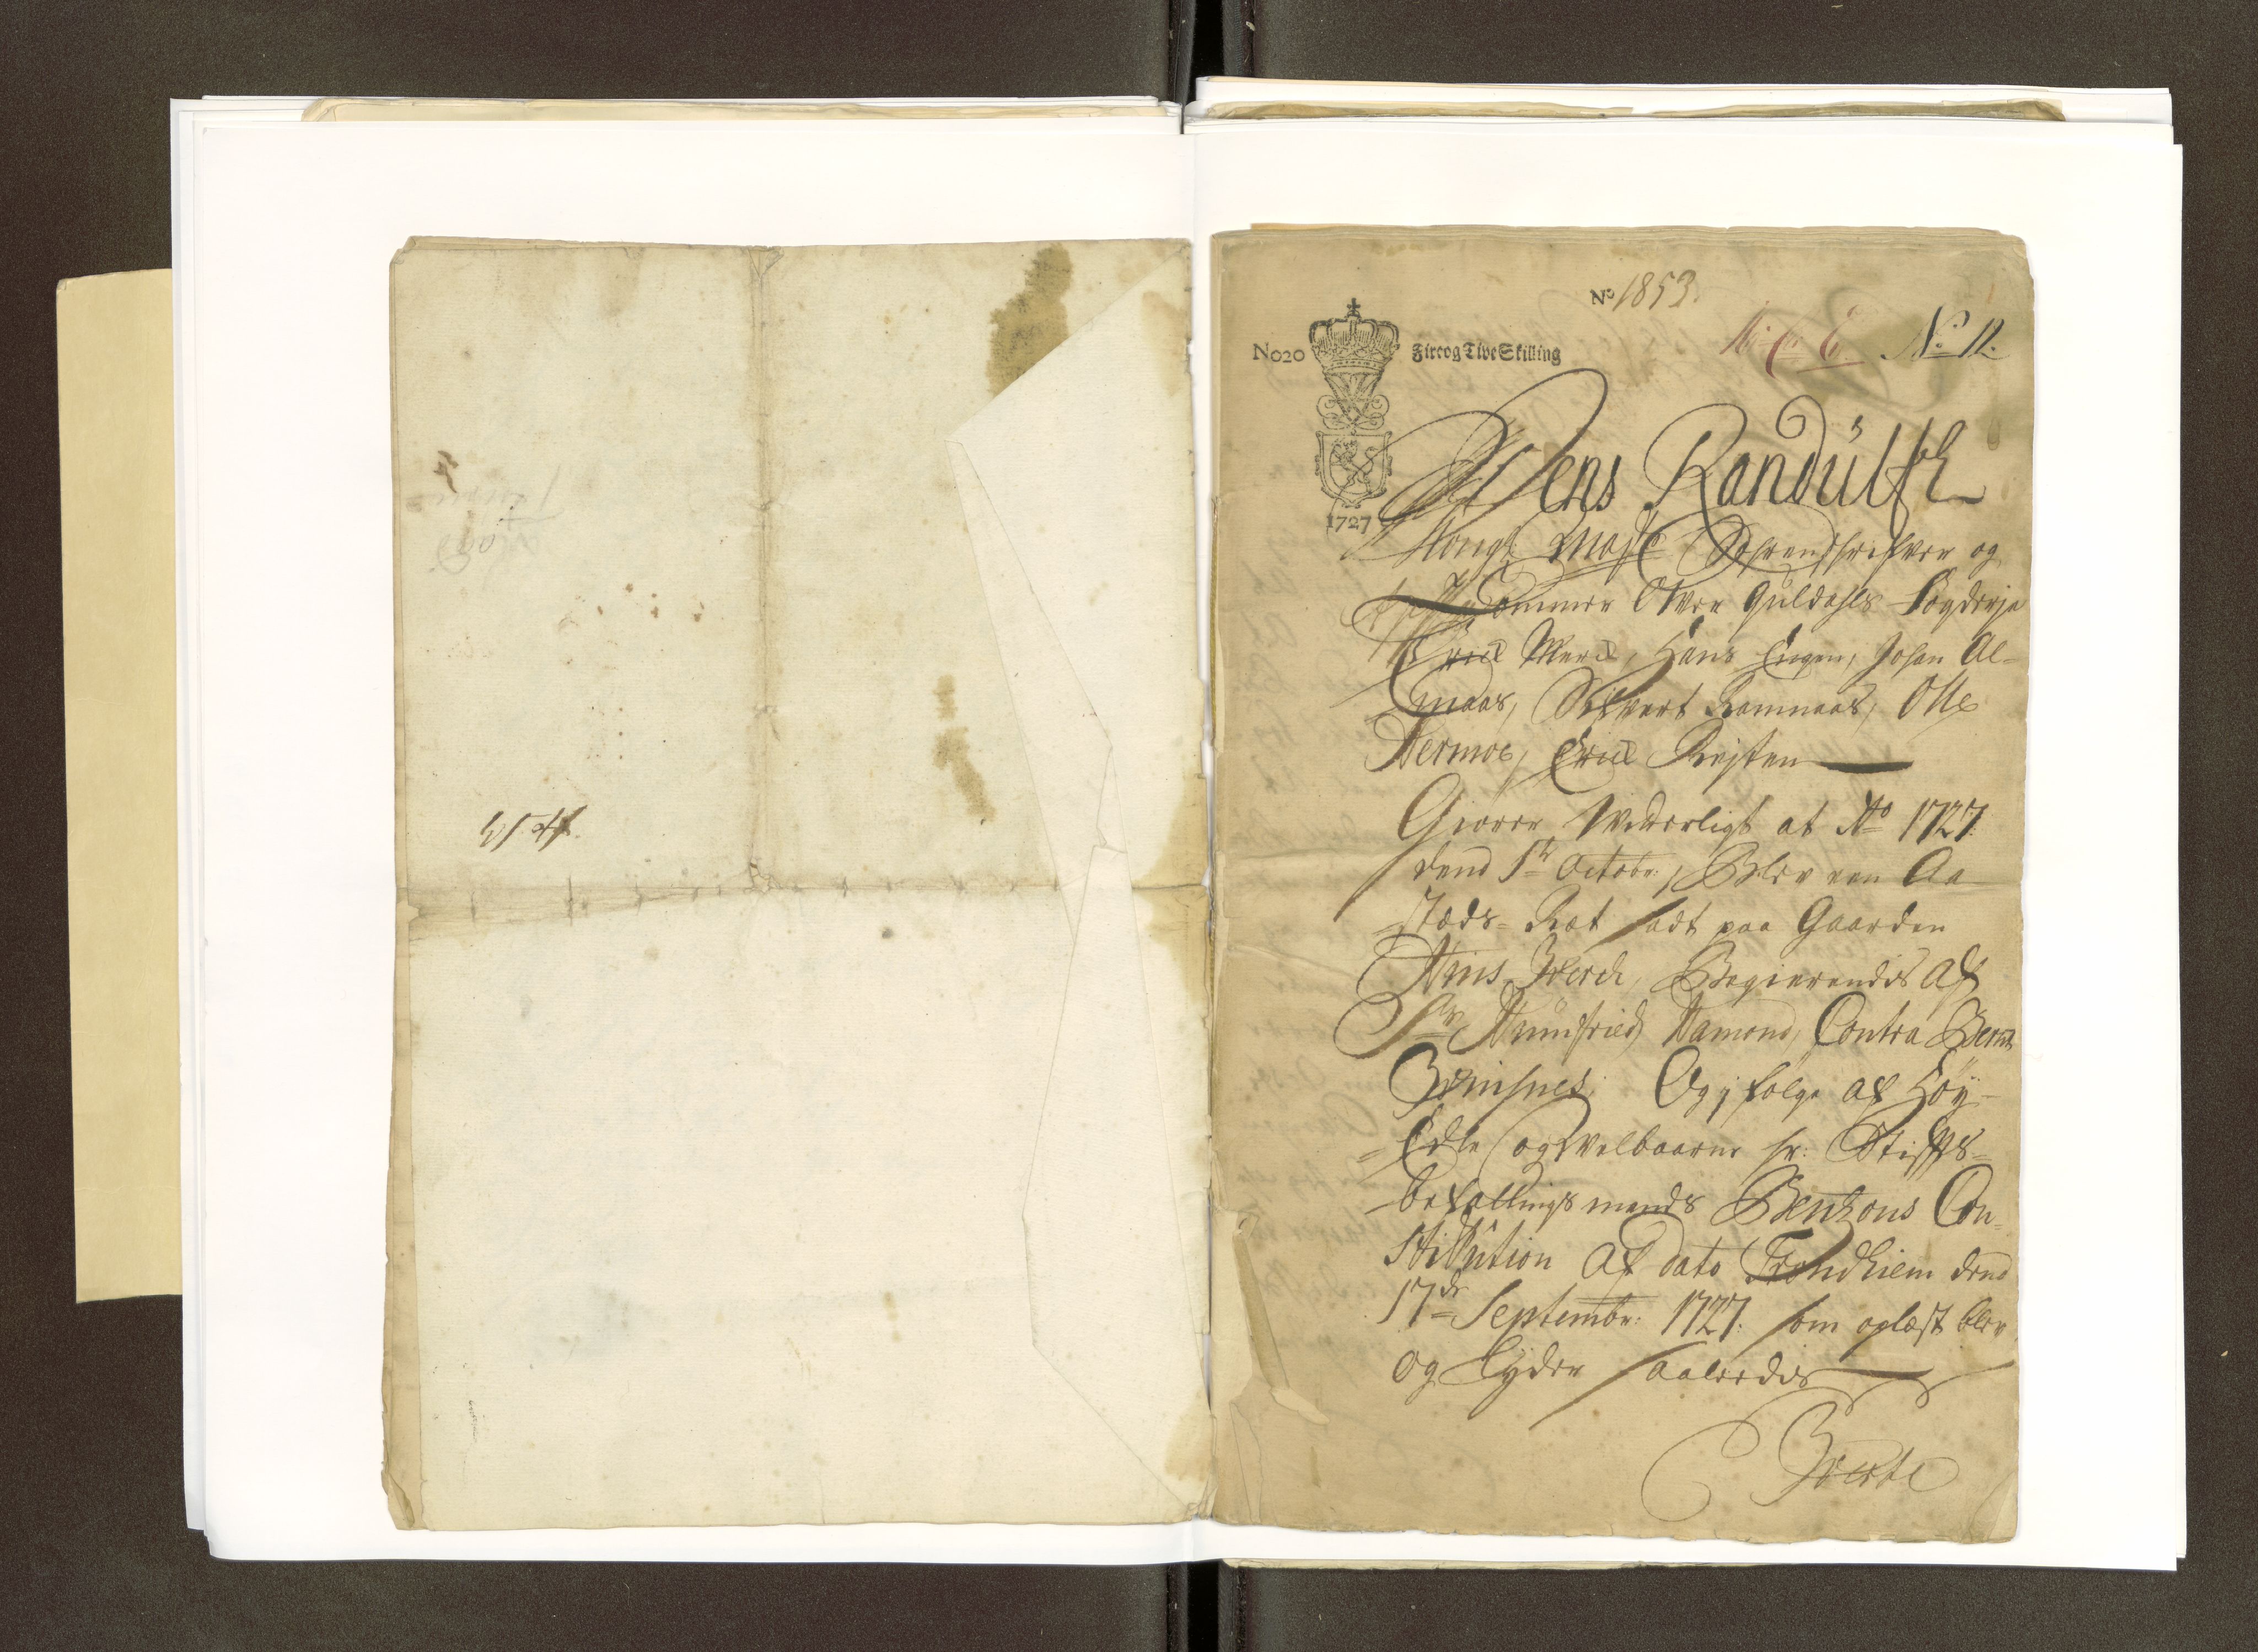 No 1853
No20
Fire og Tive Skilling
No. 12.
1727
Jens Randulfh
Kongl: Mayts Sorenschrifver og
Dommer Over Guldahls Fogderje
Erich Merch, Hans Engen, Johan Al-
maas, Sifvert Ramnaas, Olle
Nermoe, Erich Rejsten
Giører Witterligt at Ao 1727.
dend 1te Octobr:, Blev een Aa
=stæds- Ret sadt paa Gaarden
Begierendis af
Sr Namond, Contra Bernt
Og j følge af Høy-
=Edle og Welbaarne hr: Stiffts-
befallingsmands Benzons Con-
stitution af dato Trondhiem dend
17de Septembr: 1727. som oplæst blev
og Lyder saaledis